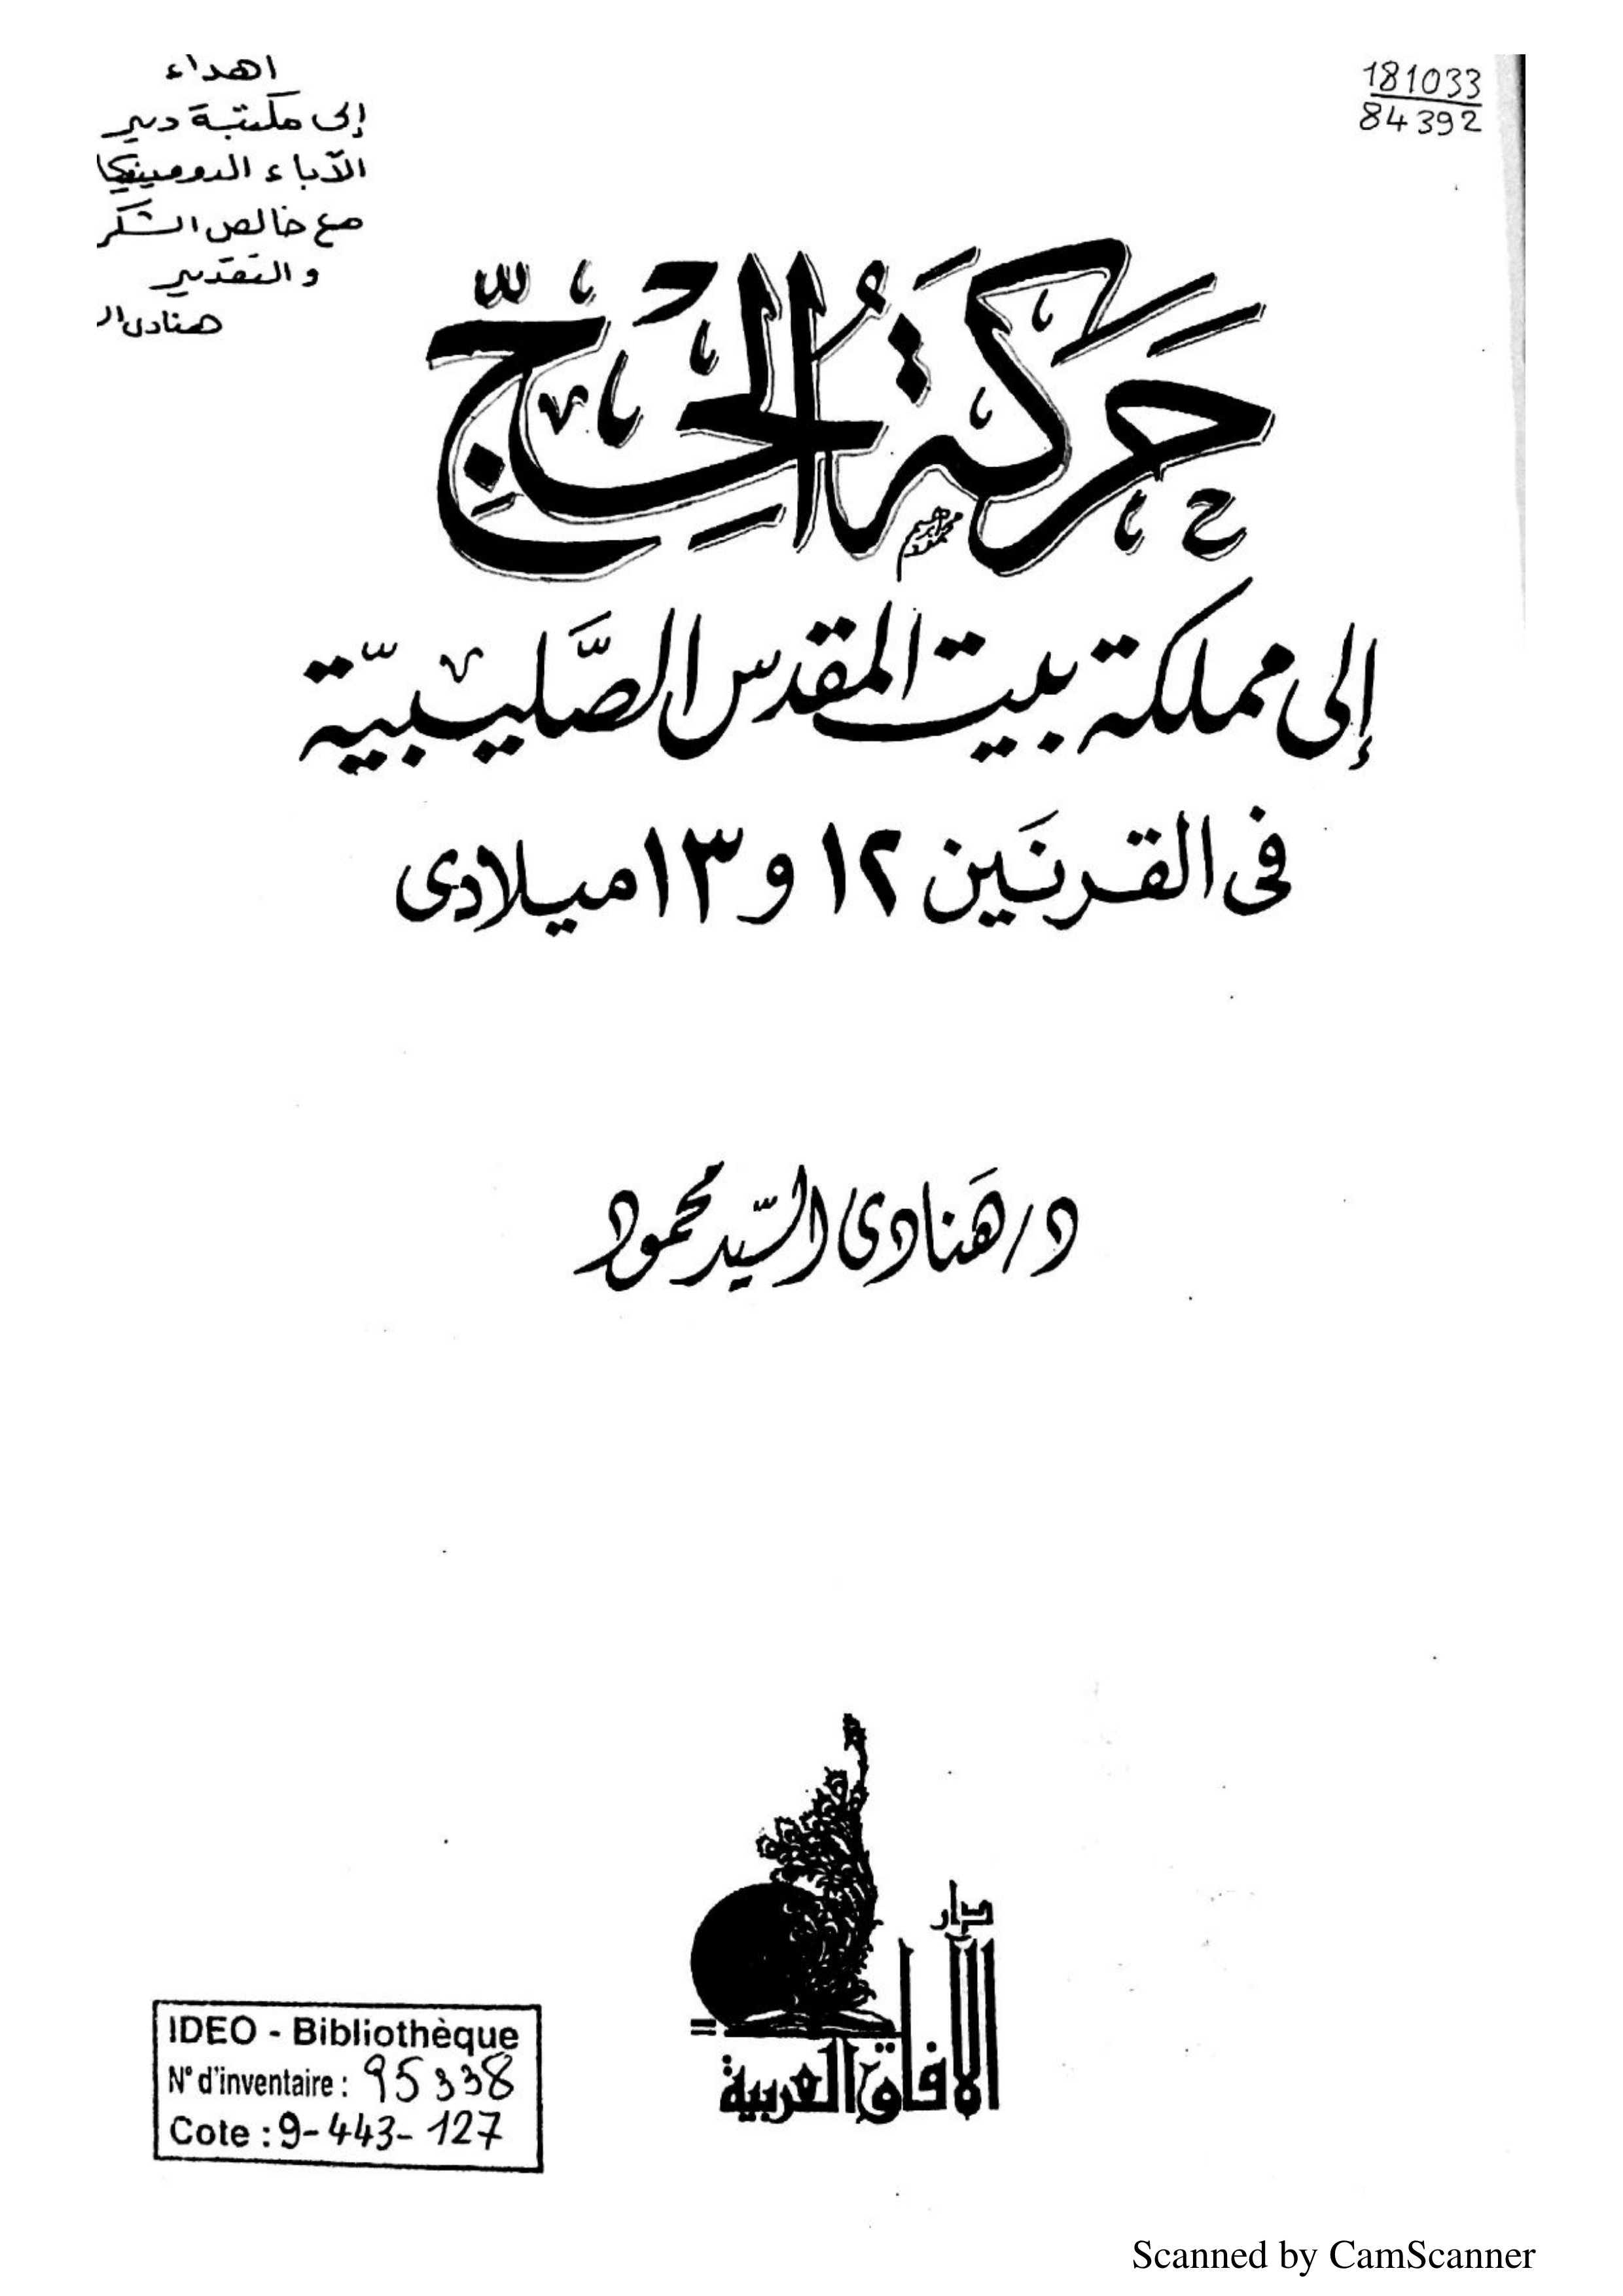 اهداء
إلى مكتبة دير
الآباء الدومينيكا
مع خالص الشكر
والتقدير
هنادى ال
181033
84392
حَرَكَةُ الحَجِّ
إلى مملكة بيت المقدس الصَّليبيّة
فى القرنَين ١٢ و ١٣ ميلادى
د/ هَنادى السّيد محمود
دار
الآفاق العربية
IDEO - Bibliothèque
N° d'inventaire : 95338
Cote : 9-443-127
Scanned by CamScanner